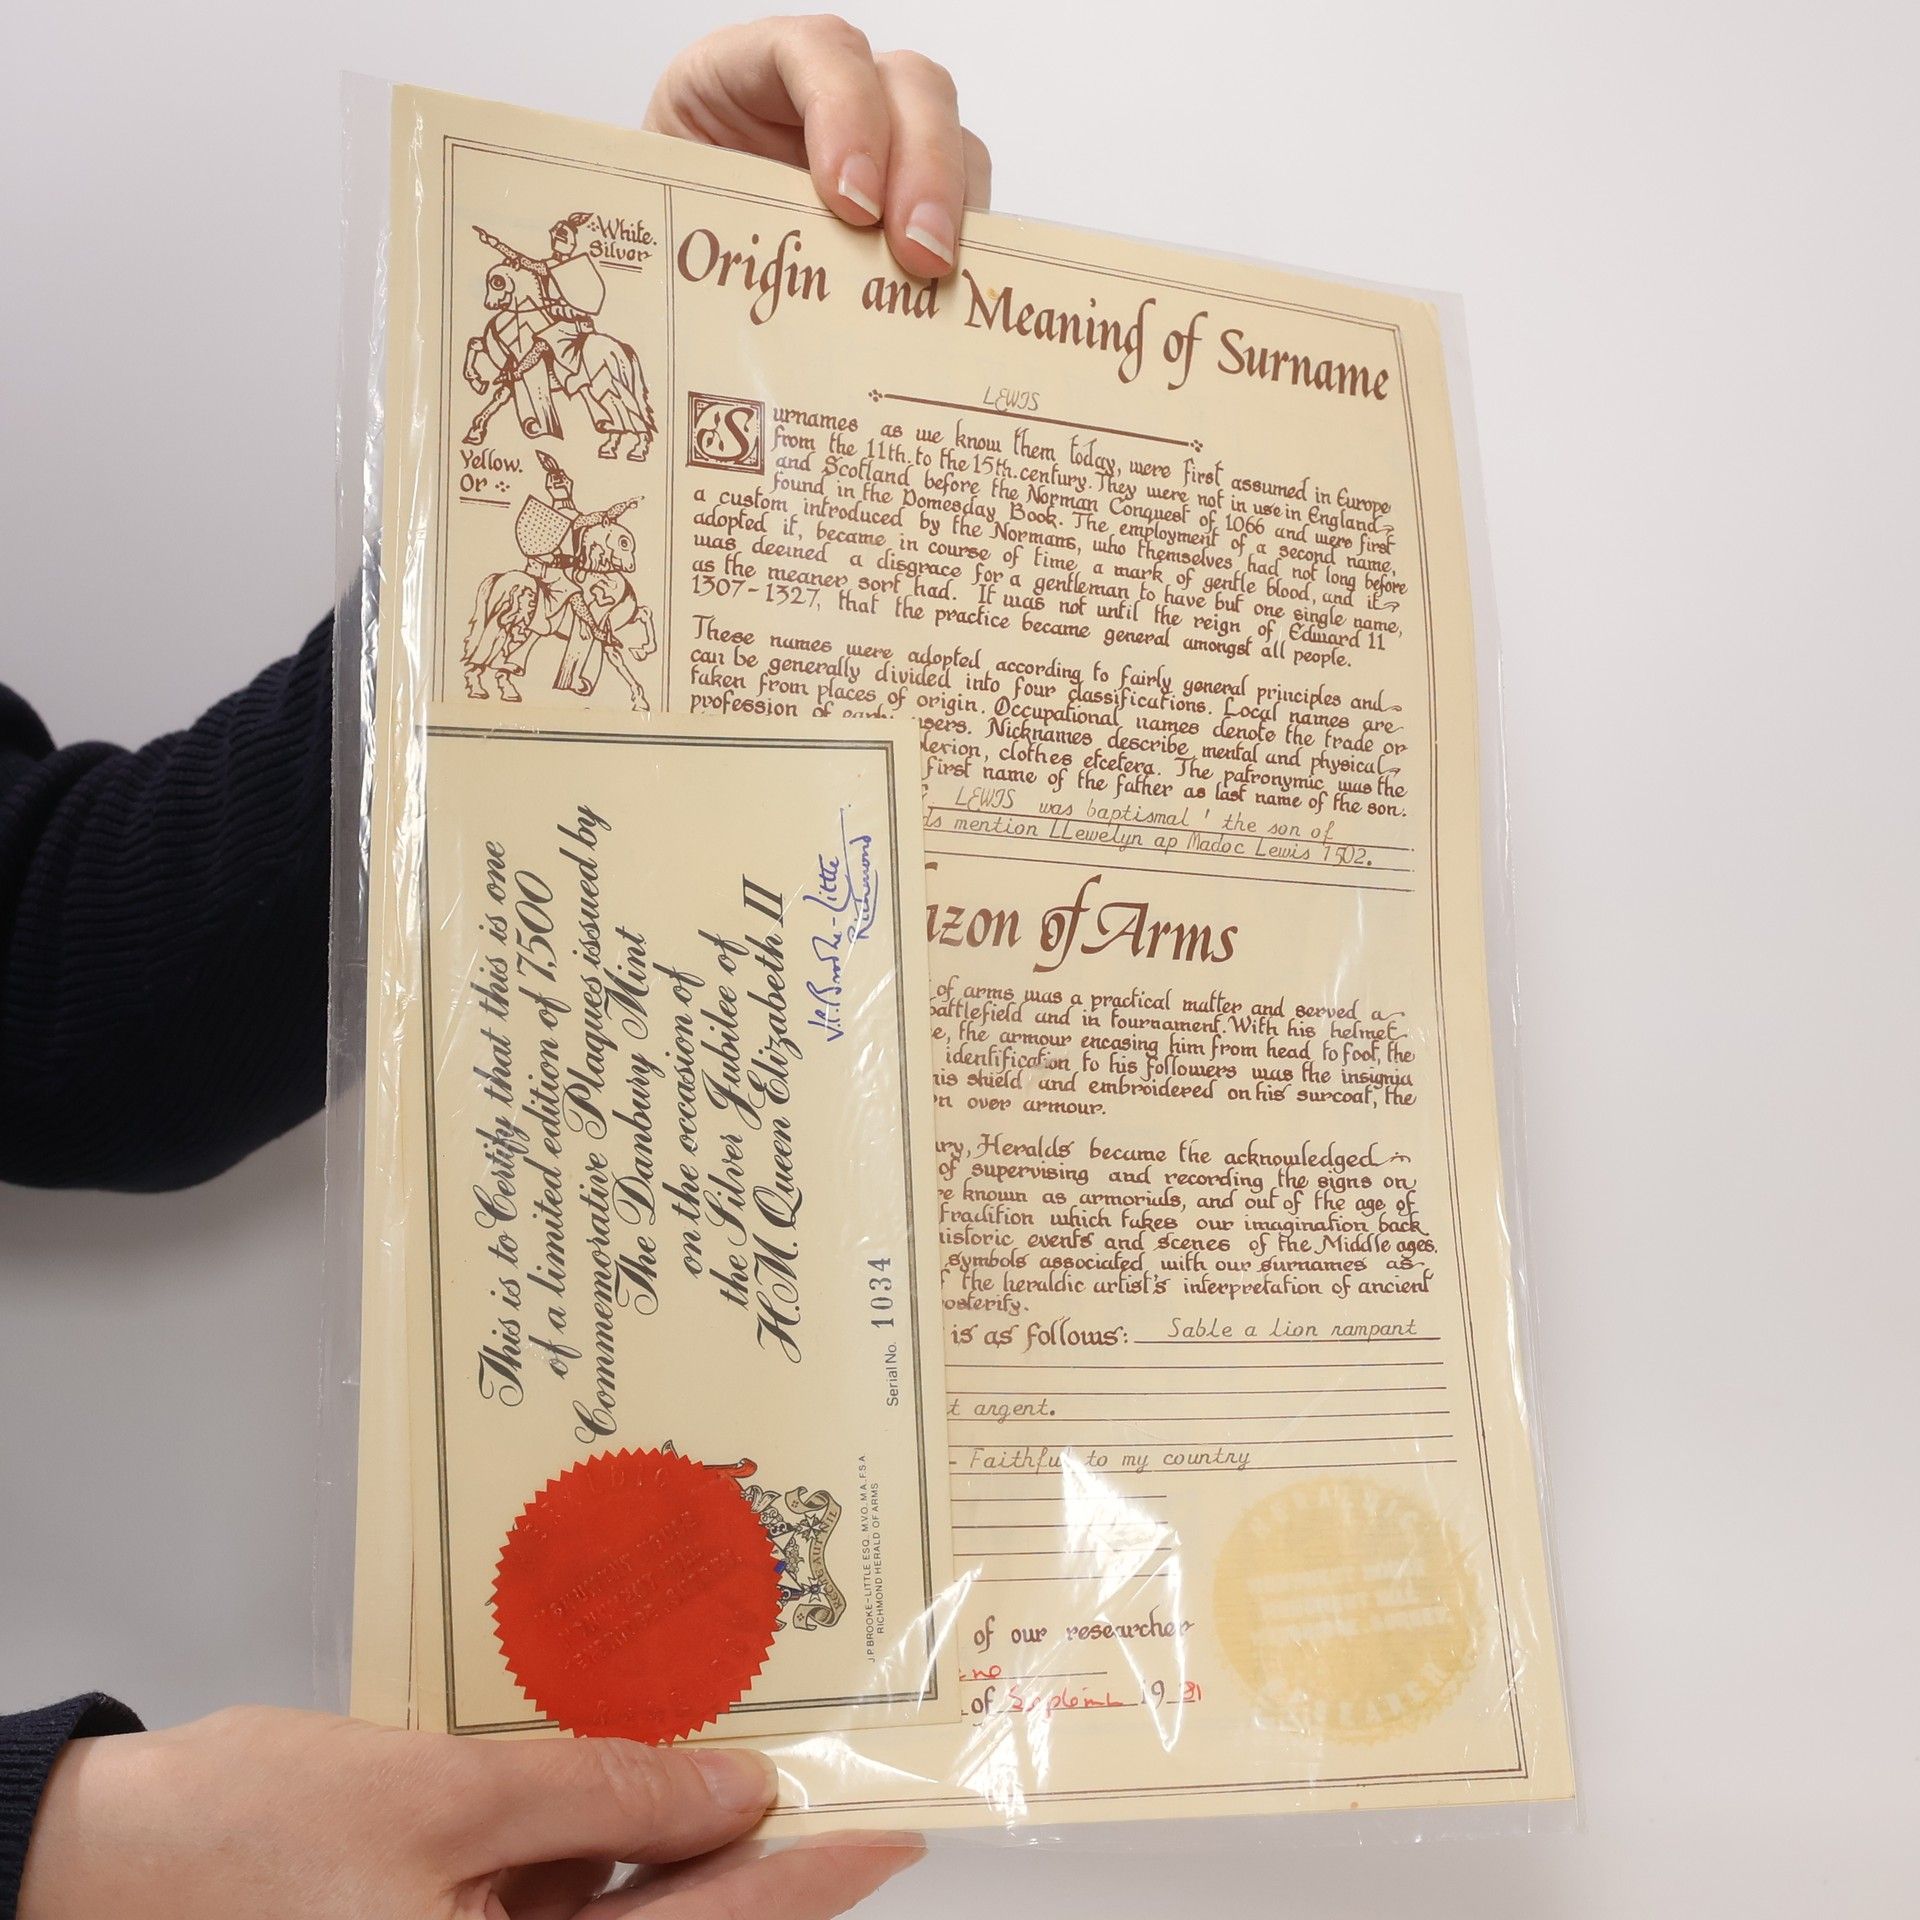 White.
Silver
Yellow.
Or
Origin and Meaning of Surname
LEWIS
Surnames as we know them today, were first assumed in Europe
from the 11th. to the 15th. century. They were not in use in England
and Scotland before the Norman Conquest of 1066 and were first
found in the Domesday Book. The employment of a second name,
a custom introduced by the Normans, who themselves had not long before
adopted it, became in course of time, a mark of gentle blood, and it
was deemed a disgrace for a gentleman to have but one single name,
as the meaner sort had. It was not until the reign of Edward 11
1307-1327, that the practice became general amongst all people.
These names were adopted according to fairly general principles and
can be generally divided into four classifications. Local names are
taken from places of origin. Occupational names denote the trade or
profession of early users. Nicknames describe mental and physical
lexion, clothes etcetera. The patronymic was the
first name of the father as last name of the son.
LEWIS was baptismal ' the son of
ds mention LLewelyn ap Madoc Lewis 1502.
azon of Arms
of arms was a practical matter and served a
battlefield and in tournament. With his helmet
e, the armour encasing him from head to foot, the
identification to his followers was the insignia
his shield and embroidered on his surcoat, the
n over armour.
ury, Heralds became the acknowledged
of supervising and recording the signs on
re known as armorials, and out of the age of
tradition which takes our imagination back
historic events and scenes of the Middle ages.
symbols associated with our surnames as
f the heraldic artist's interpretation of ancient
posterity.
is as follows: Sable a lion rampant
t argent.
- Faithful to my country
of our researcher
of 19 81
This is to Certify that this is one
of a limited edition of 7,500
Commemorative Plaques issued by
The Danbury Mint
on the occasion of
the Silver Jubilee of
H.M. Queen Elizabeth II
J.P. Brooke-Little
Richmond
Serial No. 1034
J.P. BROOKE-LITTLE ESQ. M.V.O. M.A. F.S.A.
RICHMOND HERALD OF ARMS